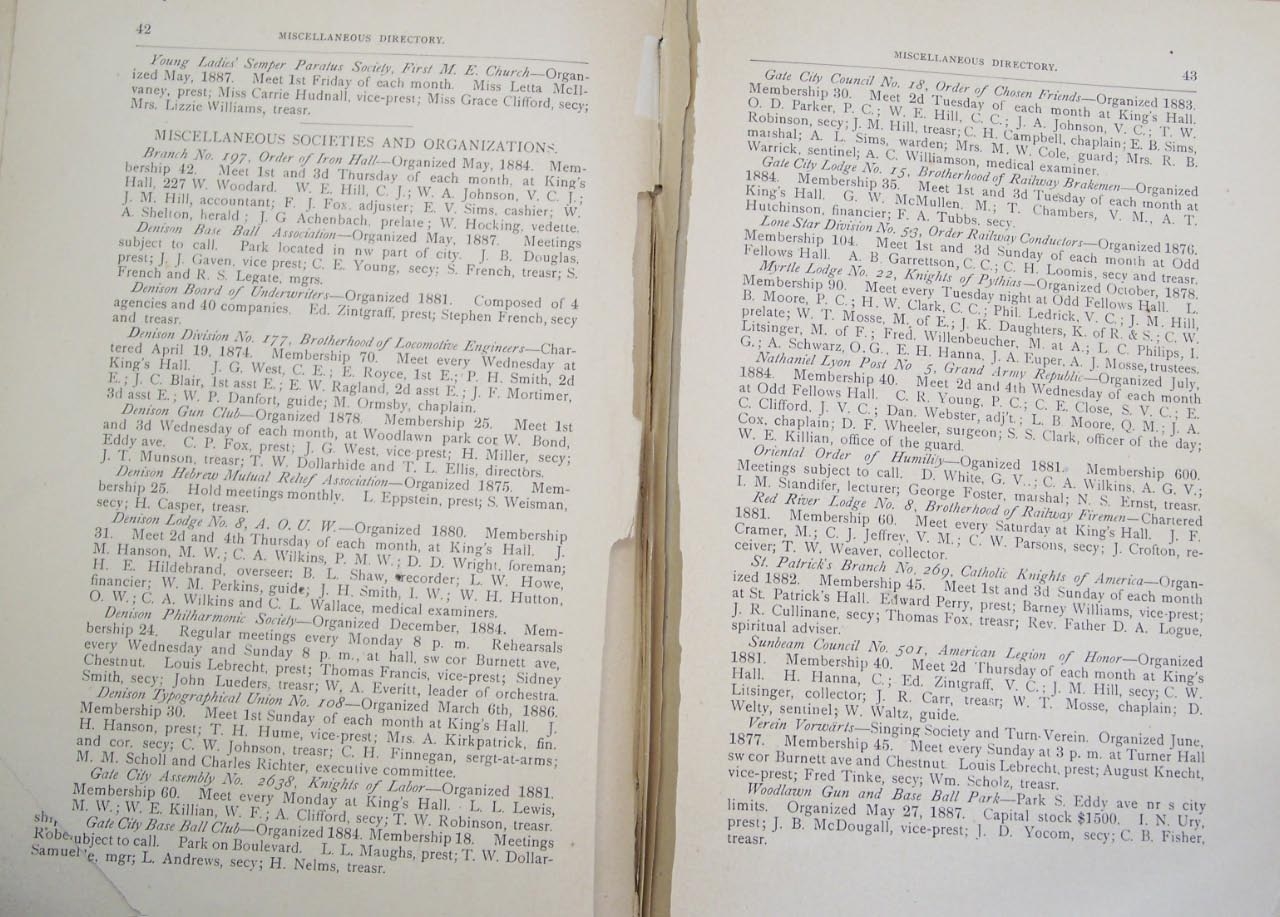 42
MISCELLANEOUS DIRECTORY.
Young Ladies' Semper Paratus Society, First M. E. Church—Organ-
ized May, 1887. Meet 1st Friday of each month. Miss Letta McIl-
vaney, prest; Miss Carrie Hudnall, vice-prest; Miss Grace Clifford, secy;
Mrs. Lizzie Williams, treasr.
MISCELLANEOUS SOCIETIES AND ORGANIZATIONS.
Branch No. 197, Order of Iron Hall—Organized May, 1884. Mem-
bership 42. Meet 1st and 3d Thursday of each month, at King's
Hall, 227 W. Woodard. W. E. Hill, C. J.; W. A. Johnson, V. C. J.;
J. M. Hill, accountant; F. J. Fox, adjuster; E. V. Sims, cashier; W.
A. Shelton, herald; J. G Achenbach, prelate; W. Hocking, vedette.
Denison Base Ball Association—Organized May, 1887. Meetings
subject to call. Park located in nw part of city. J. B. Douglas,
prest; J. J. Gaven, vice prest; C. E. Young, secy; S. French, treasr; S.
French and R. S. Legate, mgrs.
Denison Board of Underwriters—Organized 1881. Composed of 4
agencies and 40 companies. Ed. Zintgraff, prest; Stephen French, secy
and treasr.
Denison Division No. 177, Brotherhood of Locomotive Engineers—Char-
tered April 19, 1874. Membership 70. Meet every Wednesday at
King's Hall. J. G. West, C. E.; E. Royce, 1st E.; P. H. Smith, 2d
E.; J. C. Blair, 1st asst E.; E. W. Ragland, 2d asst E.; J. F. Mortimer,
3d asst E.; W. P. Danfort, guide; M. Ormsby, chaplain.
Denison Gun Club—Organized 1878. Membership 25. Meet 1st
and 3d Wednesday of each month, at Woodlawn park cor W. Bond,
Eddy ave. C. P. Fox, prest; J. G. West, vice-prest; H. Miller, secy;
J. T. Munson, treasr; T. W. Dollarhide and T. L. Ellis, directors.
Denison Hebrew Mutual Relief Association—Organized 1875. Mem-
bership 25. Hold meetings monthly. L. Eppstein, prest; S. Weisman,
secy; H. Casper, treasr.
Denison Lodge No. 8, A. O. U. W.—Organized 1880. Membership
31. Meet 2d and 4th Thursday of each month, at King's Hall. J.
M. Hanson, M. W.; C. A. Wilkins, P. M. W.; D. D. Wright, foreman;
H. E. Hildebrand, overseer; B. L. Shaw, recorder; L. W. Howe,
financier; W. M. Perkins, guide; J. H. Smith, I. W.; W. H. Hutton,
O. W.; C. A. Wilkins and C. L. Wallace, medical examiners.
Denison Philharmonic Society—Organized December, 1884. Mem-
bership 24. Regular meetings every Monday 8 p. m. Rehearsals
every Wednesday and Sunday 8 p. m., at hall, sw cor Burnett ave,
Chestnut. Louis Lebrecht, prest; Thomas Francis, vice-prest; Sidney
Smith, secy; John Lueders, treasr; W, A. Everitt, leader of orchestra.
Denison Typographical Union No. 108—Organized March 6th, 1886.
Membership 30. Meet 1st Sunday of each month at King's Hall. J.
H. Hanson, prest; T. H. Hume, vice-prest; Mrs. A. Kirkpatrick, fin.
and cor. secy; C. W. Johnson, treasr; C. H. Finnegan, sergt-at-arms;
M. M. Scholl and Charles Richter, executive committee.
Gate City Assembly No. 2638, Knights of Labor—Organized 1881.
Membership 60. Meet every Monday at King's Hall. L. L. Lewis,
M. W.; W. E. Killian, W. F.; A. Clifford, secy; T. W. Robinson, treasr.
Gate City Base Ball Club—Organized 1884. Membership 18. Meetings
subject to call. Park on Boulevard. L. L. Maughs, prest; T. W. Dollar-
e, mgr; L. Andrews, secy; H. Nelms, treasr.
Samuel
MISCELLANEOUS DIRECTORY.
43
Gate City Council No. 18, Order of Chosen Friends—Organized 1883.
Membership 30. Meet 2d Tuesday of each month at King's Hall.
O. D. Parker, P. C.; W. E. Hill, C. C.; J. A. Johnson, V. C.; T. W.
Robinson, secy; J. M. Hill, treasr; C. H. Campbell, chaplain; E. B. Sims,
marshal; A. L. Sims, warden; Mrs. M. W. Cole, guard; Mrs. R. B.
Warrick, sentinel; A. C. Williamson, medical examiner.
Gate City Lodge No. 15, Brotherhood of Railway Brakemen—Organized
1884. Membership 35. Meet 1st and 3d Tuesday of each month at
King's Hall. G. W. McMullen, M.; T. Chambers, V. M., A. T.
Hutchinson, financier; F. A. Tubbs, secy.
Lone Star Division No. 53, Order Railway Conductors—Organized 1876.
Membership 104. Meet 1st and 3d Sunday of each month at Odd
Fellows Hall. A. B. Garrettson, C. C.; C. H. Loomis, secy and treasr.
Myrtle Lodge No. 22, Knights of Pythias—Organized October, 1878.
Membership 90. Meet every Tuesday night at Odd Fellows Hall. L.
B. Moore, P. C.; H. W. Clark, C. C.; Phil. Ledrick, V. C.; J. M. Hill,
prelate; W. T. Mosse, M. of E.; J. K. Daughters, K. of R. & S.; C. W.
Litsinger, M. of F.; Fred. Willenbeucher, M. at A.; L. C. Philips, I.
G.; A. Schwarz, O. G., E. H. Hanna, J. A. Euper, A. J. Mosse, trustees.
Nathaniel Lyon Post No 5, Grand Army Republic—Organized July,
1884. Membership 40. Meet 2d and 4th Wednesday of each month
at Odd Fellows Hall. C. R. Young, P. C.; C. E. Close, S. V. C.; E.
C. Clifford, J. V. C.; Dan. Webster, adj't.; L. B Moore, Q. M.; J. A.
Cox, chaplain; D. F. Wheeler, surgeon; S. S. Clark, officer of the day;
W. E. Killian, office of the guard.
Oriental Order of Humility—Oganized 1881. Membership 600.
Meetings subject to call. D. White, G. V..; C. A. Wilkins, A. G. V.;
I. M. Standifer, lecturer; George Foster, marshal; N. S. Ernst, treasr.
Red River Lodge No. 8, Brotherhood of Railway Firemen—Chartered
1881. Membership 60. Meet every Saturday at King's Hall. J. F.
Cramer, M.; C. J. Jeffrey, V. M.; C. W. Parsons, secy; J. Crofton, re-
ceiver; T. W. Weaver, collector.
St. Patrick's Branch No. 269, Catholic Knights of America—Organ-
ized 1882. Membership 45. Meet 1st and 3d Sunday of each month
at St. Patrick's Hall. Edward Perry, prest; Barney Williams, vice-prest;
J. R. Cullinane, secy; Thomas Fox, treasr; Rev. Father D. A. Logue,
spiritual adviser.
Sunbeam Council No. 501, American Legion of Honor—Organized
1881. Membership 40. Meet 2d Thursday of each month at King's
Hall. H. Hanna, C.; Ed. Zintgraff, V. C.; J. M. Hill, secy; C. W.
Litsinger, collector; J. R. Carr, treasr; W. T. Mosse, chaplain; D.
Welty, sentinel; W. Waltz, guide.
Verein Vorwärts—Singing Society and Turn-Verein. Organized June,
1877. Membership 45. Meet every Sunday at 3 p. m. at Turner Hall
sw cor Burnett ave and Chestnut. Louis Lebrecht, prest; August Knecht,
vice-prest; Fred Tinke, secy; Wm. Scholz, treasr.
Woodlawn Gun and Base Ball Park—Park S. Eddy ave nr s city
limits. Organized May 27, 1887. Capital stock $1500. I. N. Ury,
prest; J. B. McDougall, vice-prest; J. D. Yocom, secy; C. B. Fisher,
treasr.